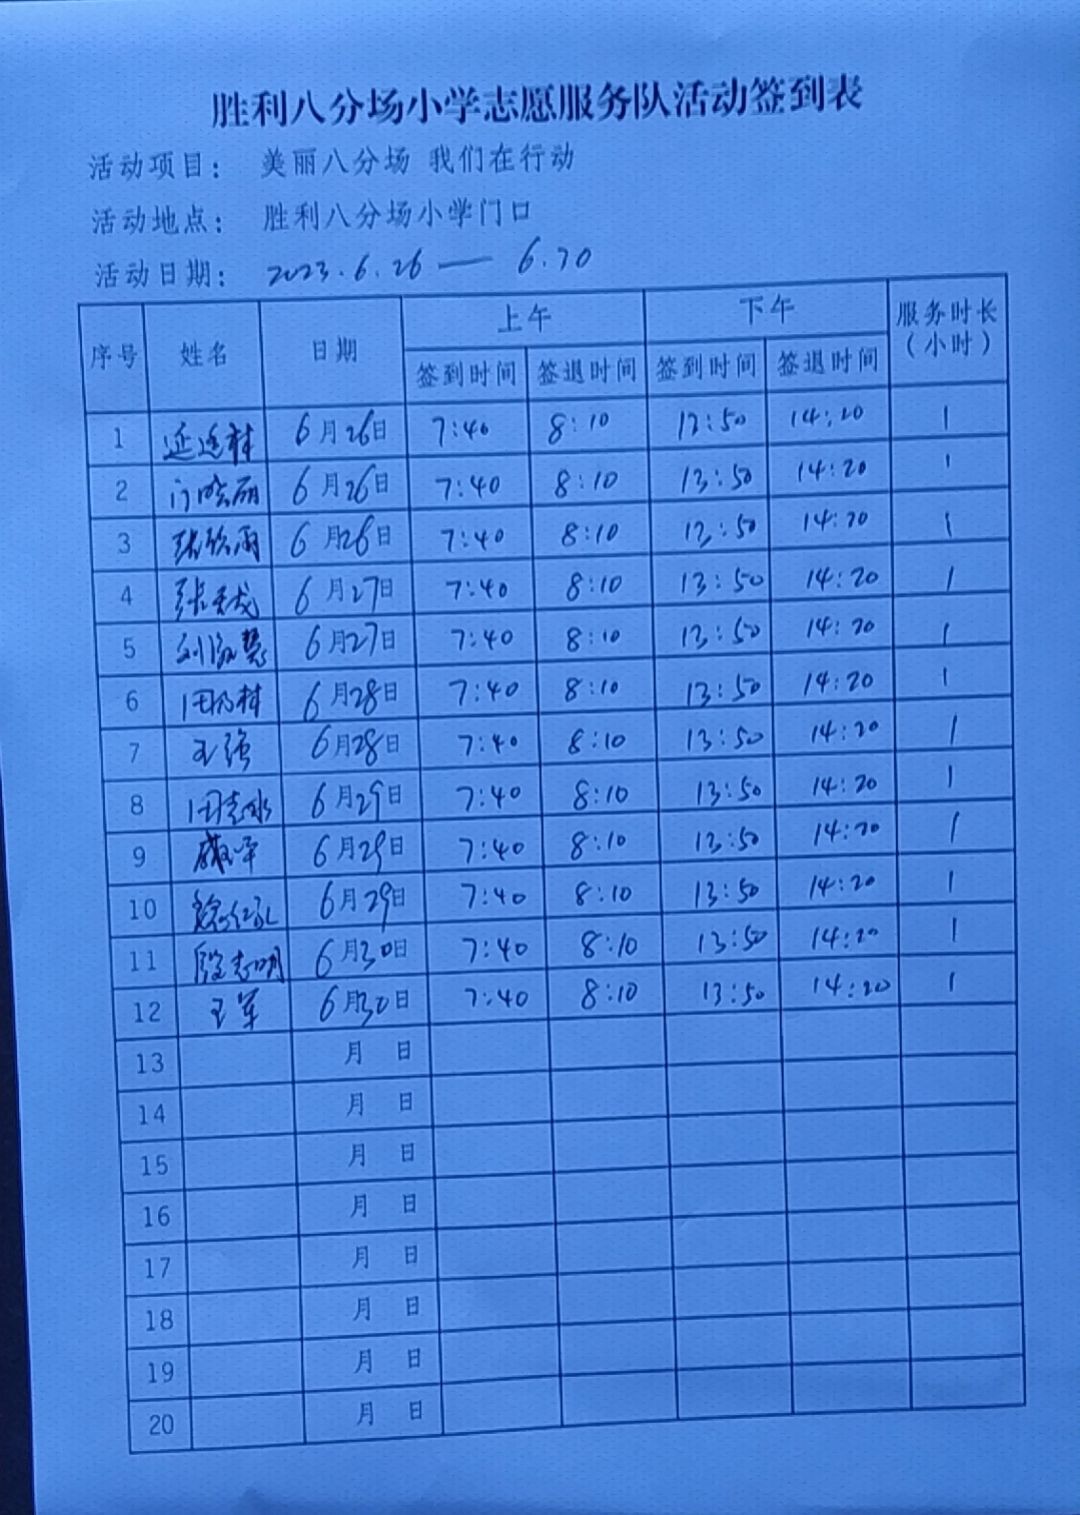 胜利八分场小学志愿服务队活动签到表
活动项目： 美丽八分场 我们在行动
活动地点： 胜利八分场小学门口
活动日期： 2023.6.26 — 6.30
序号 姓名 日期 上午 下午 服务时长（小时）
签到时间 签退时间 签到时间 签退时间
1 6月26日 7:40 8:10 13:50 14:20 1
2 门晓丽 6月26日 7:40 8:10 13:50 14:20 1
3 张欣雨 6月26日 7:40 8:10 13:50 14:20 1
4 6月27日 7:40 8:10 13:50 14:20 1
5 刘淑慧 6月27日 7:40 8:10 13:50 14:20 1
6 6月28日 7:40 8:10 13:50 14:20 1
7 王强 6月28日 7:40 8:10 13:50 14:20 1
8 田志冰 6月29日 7:40 8:10 13:50 14:20 1
9 6月29日 7:40 8:10 13:50 14:20 1
10 6月29日 7:40 8:10 13:50 14:20 1
11 段志明 6月30日 7:40 8:10 13:50 14:20 1
12 王军 6月30日 7:40 8:10 13:50 14:20 1
13 月 日
14 月 日
15 月 日
16 月 日
17 月 日
18 月 日
19 月 日
20 月 日